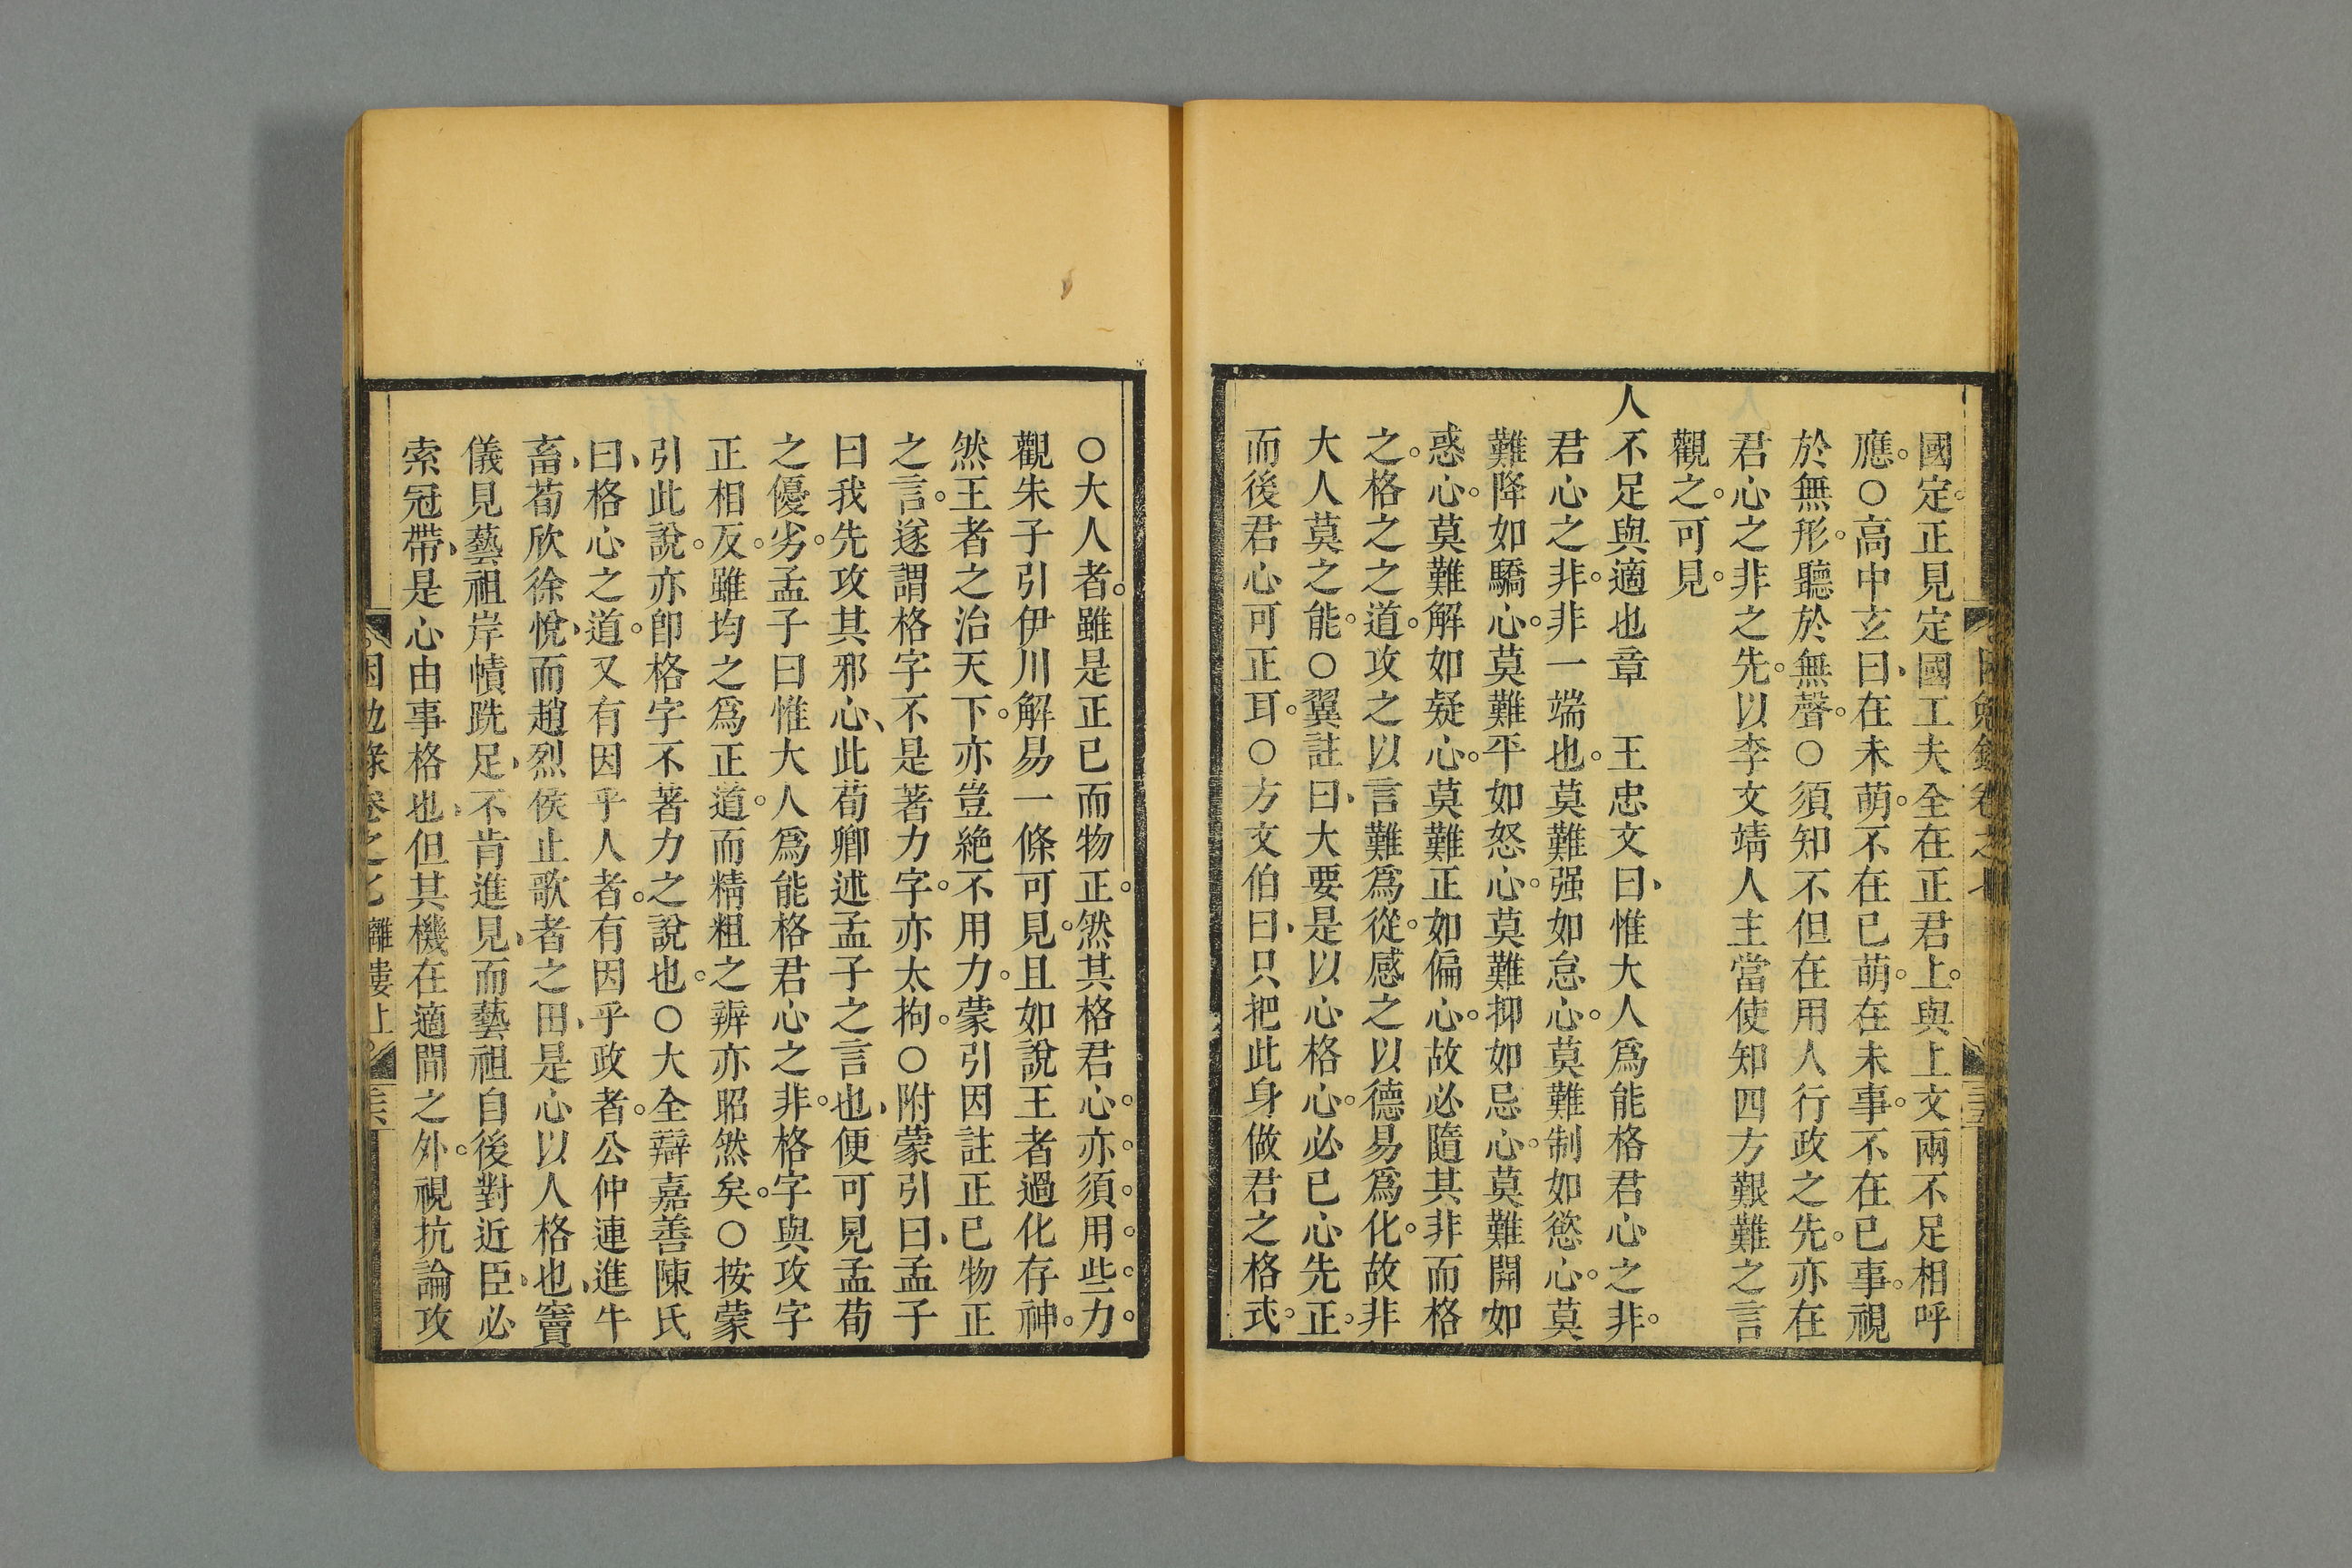 國定。正見定國工夫全在正君上。與上文兩不足相呼
應。○高中玄曰、在未萌。不在已萌。在未事。不在已事。視
於無形。聽於無聲。○須知不但在用人行政之先。亦在
君心之非之先。以李文靖人主當使知四方艱難之言
觀之。可見。
人不足與適也章　王忠文曰、惟大人爲能格君心之非。
君心之非。非一端也。莫難强如怠心。莫難制如慾心。莫
難降如驕心。莫難平如怒心。莫難抑如忌心。莫難開如
惑心。莫難解如疑心。莫難正如偏心。故必隨其非而格
之。格之之道。攻之以言難爲從。感之以德易爲化。故非
大人莫之能。○翼註曰、大要是以心格心。必已心先正。
而後君心可正耳。○方文伯曰、只把此身做君之格式。
○大人者。雖是正已而物正。然其格君心。亦。須。用。些。力。
觀朱子引伊川解易一條可見。且如說王者過化存神。
然王者之治天下。亦豈絶不用力。蒙引因註正已物正
之言。遂謂格字不是著力字。亦太拘。○附蒙引曰、孟子
曰我先攻其邪心、此荀卿述孟子之言也、便可見孟荀
之優劣。孟子曰惟大人爲能格君心之非。格字與攻字
正相反。雖均之爲正道。而精粗之辨亦昭然矣。○按蒙
引此說。亦卽格字不著力之說也。○大全辯嘉善陳氏
曰、格心之道。又有因乎人者。有因乎政者。公仲連進牛
畜、荀欣徐悅、而趙烈侯止歌者之田、是心以人格也、竇
儀見藝祖岸幘跣足、不肯進見、而藝祖自後對近臣、必
索冠帶、是心由事格也、但其機在適間之外。視抗論攻
困勉錄卷之七　離婁上　三六